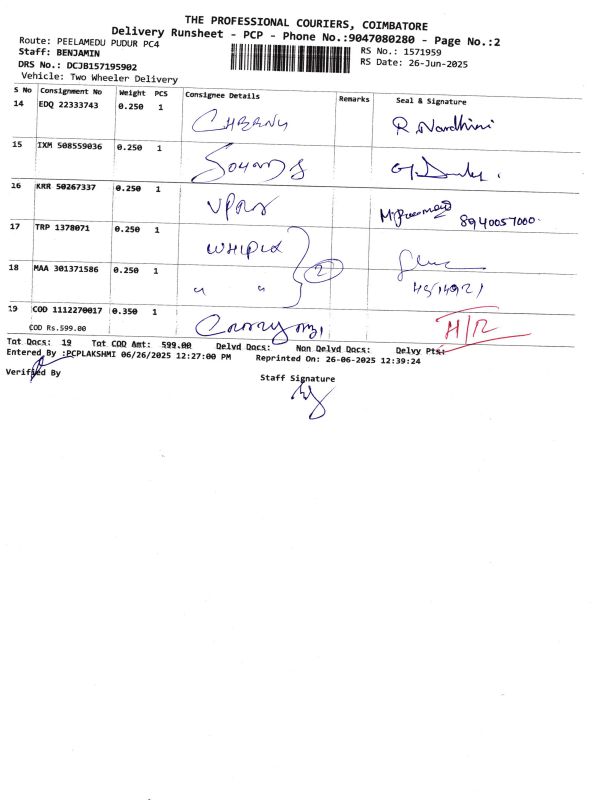 THE PROFESSIONAL COURIERS, COIMBATORE
Delivery Runsheet - PCP - Phone No.:9047080280 - Page No.:2
Route: PEELAMEDU PUDUR PC4
RS No.: 1571959
Staff: BENJAMIN
RS Date: 26-Jun-2025
DRS No.: DCJB157195902
Vehicle: Two Wheeler Delivery
S No Consignment No Weight PCS Consignee Details Remarks Seal & Signature
14 EDQ 22333743 0.250 1
15 IXM 508559036 0.250 1
16 KRR 50267337 0.250 1 8940057000.
17 TRP 1378071 0.250 1 2
18 MAA 301371586 0.250 1 " "
19 COD 1112270017 0.350 1 H/R
COD Rs.599.00
Tot Docs: 19 Tot COD Amt: 599.00 Delvd Docs: Non Delvd Docs: Delvy Pts:
Entered By :PCPLAKSHMI 06/26/2025 12:27:00 PM Reprinted On: 26-06-2025 12:39:24
Verified By
Staff Signature